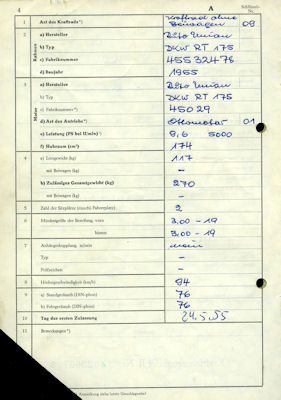 4 A Schlüssel-Nr.
1 Art des Kraftrads*) Kraftrad ohne Beiwagen 09
2 Rahmen a) Hersteller Auto Union
b) Typ DKW RT 175
c) Fabriknummer 45532476
d) Baujahr 1955
3 Motor a) Hersteller Auto Union
b) Typ DKW RT 175
c) Fabriknummer*) 45029
d) Art des Antriebs*) Ottomotor 01
e) Leistung (PS bei U/min)*) 9,6 5000
f) Hubraum (cm³) 174
4 a) Leergewicht (kg) 117
mit Beiwagen (kg) –
b) Zulässiges Gesamtgewicht (kg) 270
mit Beiwagen (kg) –
5 Zahl der Sitzplätze (einschl. Fahrerplatz) 2
6 Mindestgröße der Bereifung, vorn 3.00 - 19
hinten 3.00 - 19
7 Anhängerkupplung, ja/nein nein
Typ –
Prüfzeichen –
8 Höchstgeschwindigkeit (km/h) 94
9 a) Standgeräusch (DIN-phon) 76
b) Fahrgeräusch (DIN-phon) 76
10 Tag der ersten Zulassung 24.5.55
11 Bemerkungen*)